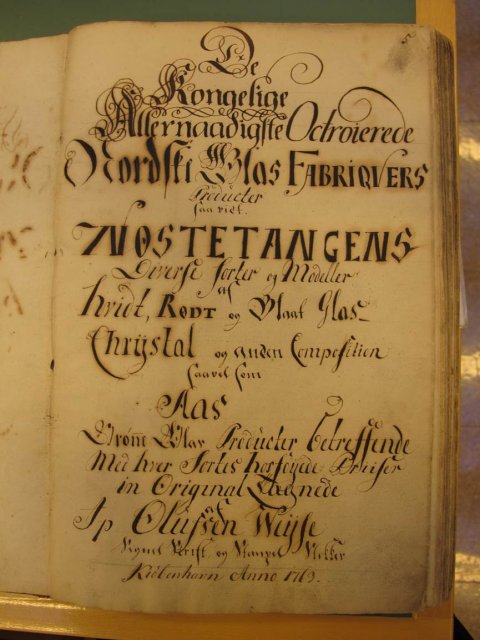 De
Kongelige
Allernaadigste Octroierede
Nordske Glas FABRIQVERS
Producter
saavidt
NØSTETANGENS
Diverse Sorter og Modeller
af
hvidt, RØDT og Blaat Glas
Chrÿstal og anden Composition
saavel som
Aas
Grønt Glas Producter betreffende
Med hver Sortes Preiser
in Original Tegnede
af
Ip Olufsen Weÿse
og
Kiöbenhavn Anno 1763.